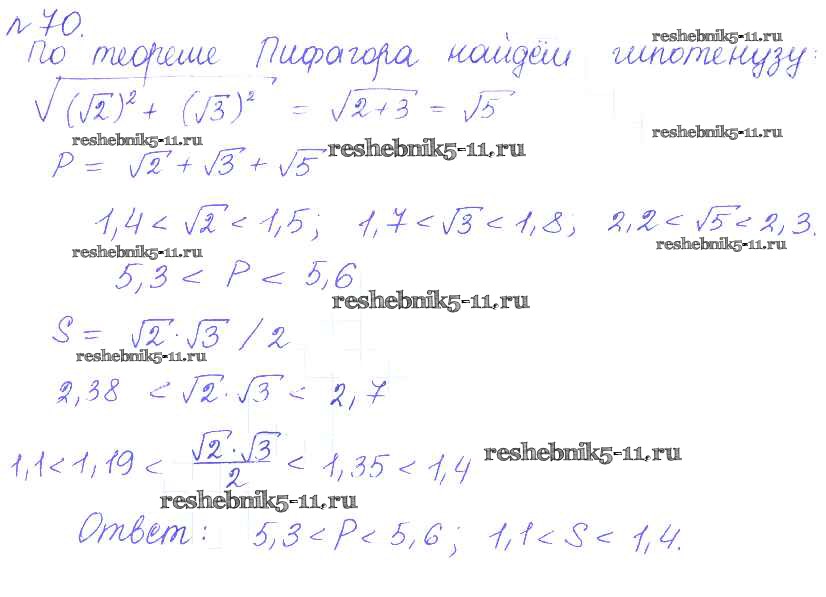 №70.
reshebnik5-11.ru
По теореме Пифагора найдём гипотенузу:
√((√2)² + (√3)²) = √(2+3) = √5
reshebnik5-11.ru reshebnik5-11.ru reshebnik5-11.ru
P = √2 + √3 + √5
1,4 < √2 < 1,5; 1,7 < √3 < 1,8; 2,2 < √5 < 2,3.
reshebnik5-11.ru reshebnik5-11.ru
5,3 < P < 5,6
reshebnik5-11.ru
S = √2 · √3 / 2
reshebnik5-11.ru
2,38 < √2 · √3 < 2,7
1,1 < 1,19 < (√2 · √3)/2 < 1,35 < 1,4
reshebnik5-11.ru
reshebnik5-11.ru
Ответ: 5,3 < P < 5,6; 1,1 < S < 1,4.